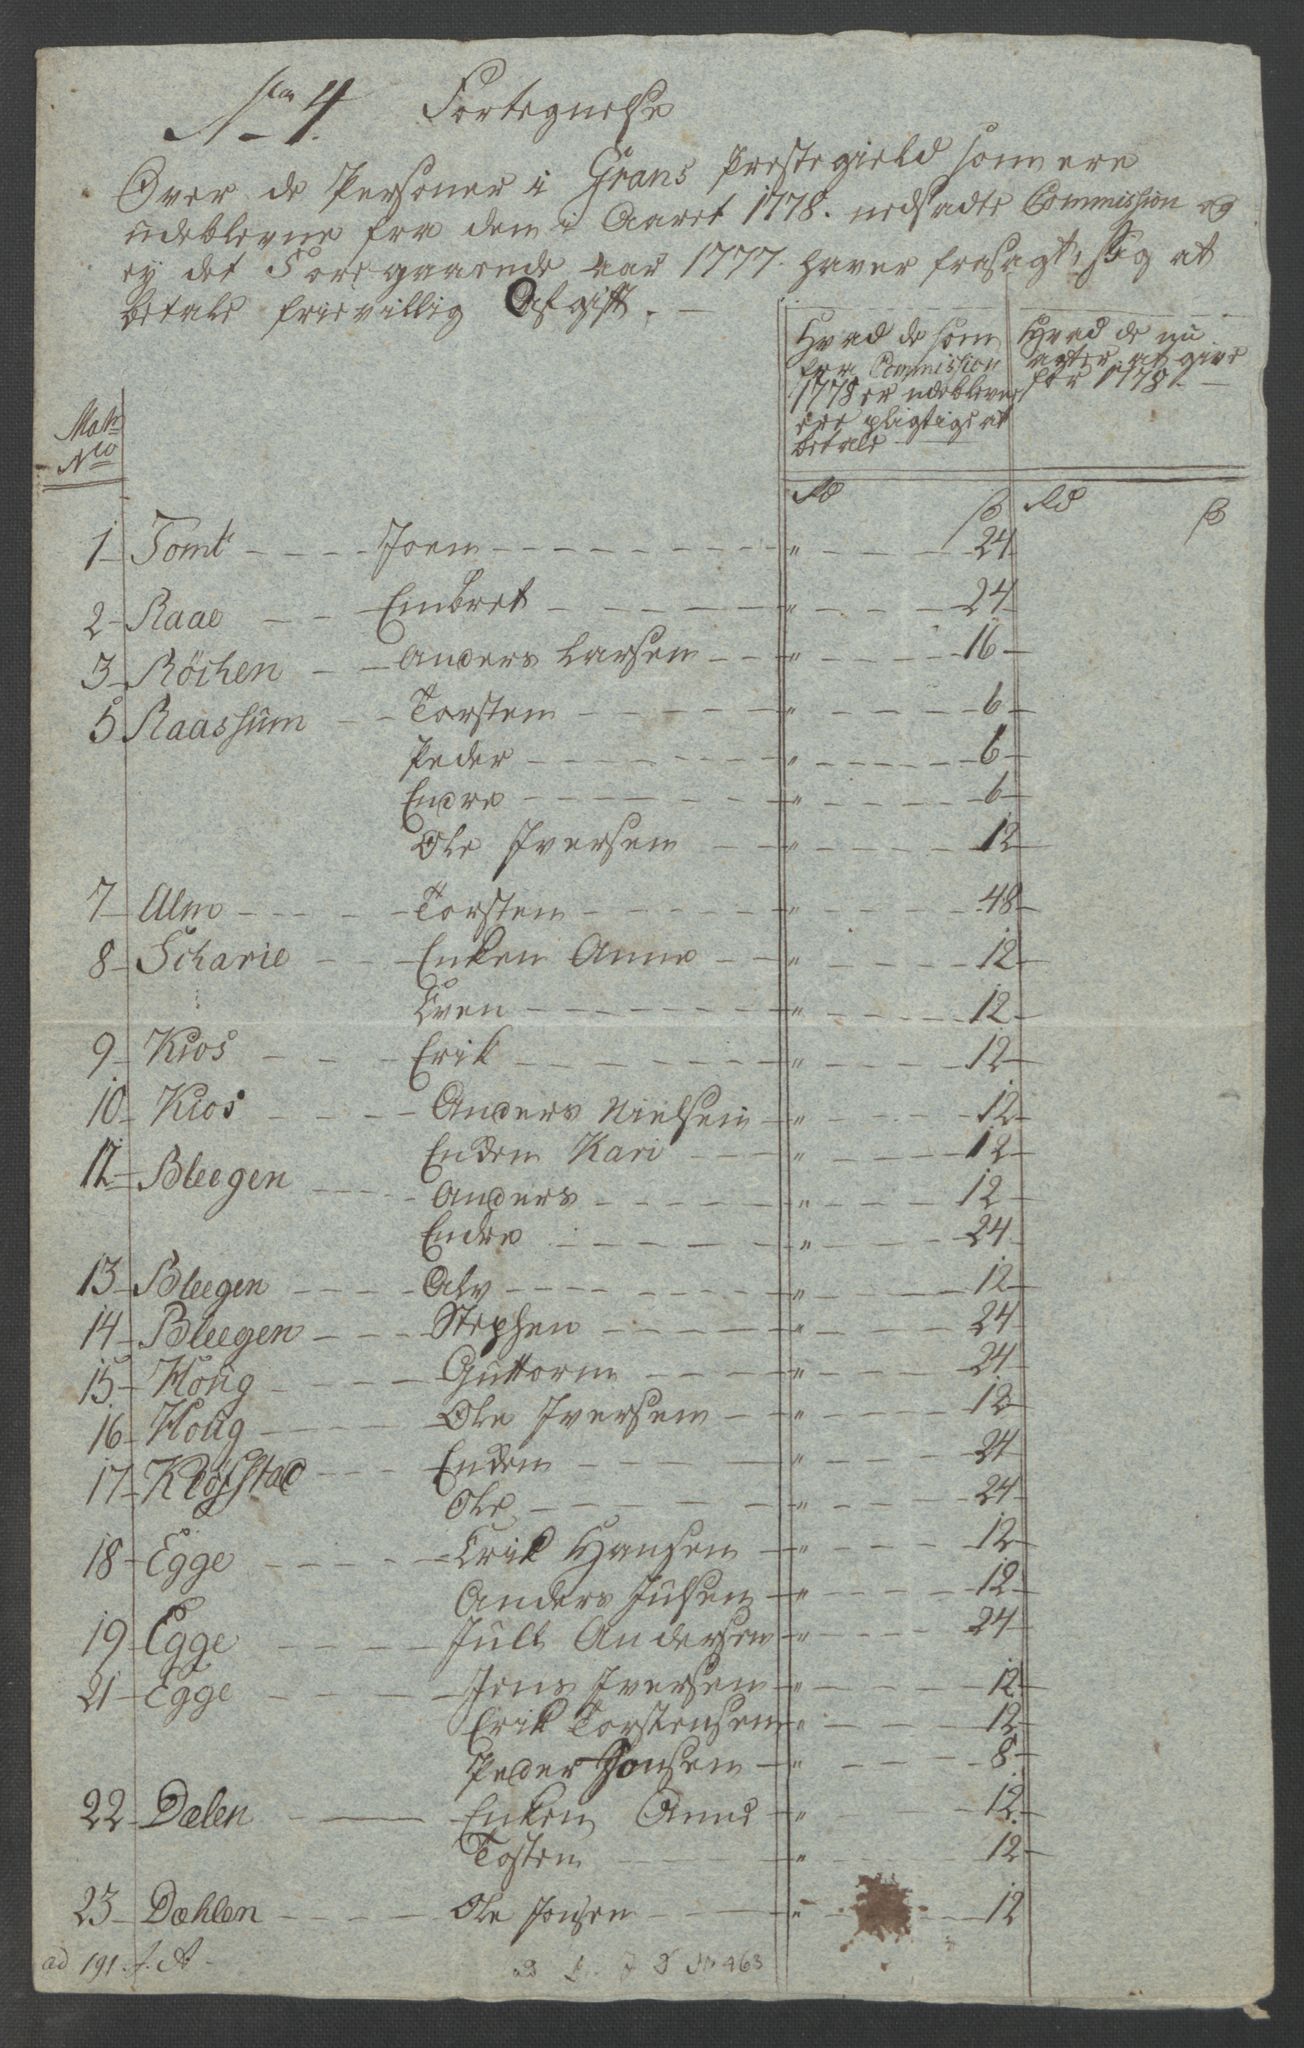 No 4. Fortegnelse
Over de Personer i Grans Præstegield som ere
udeblevne fra dem i Aaret 1778. nedsadte Commission og
ey det Foregaaende aar 1777. haver frasagt sig at
betale frievillig Afgift.
Hvad de som
fra Commission
1778 er udeblevne
ere pligtige at
betale
Hvad de nu
agter at give
for 1778
Matr
No
Rd ß Rd ß
1 Tomt Joen " 24
2 Raae Embret " 24
3 Röthen Anders Larsen " 16
5 Raassum Torsten " 6
Peder " 6
Endre " 6
Ole Iversen " 12
7 Alm Torsten " 48
8 Scharie Enken Anne " 12
Even " 12
9 Kios Erik " 12
10 Kios Anders Nielsen " 12
12 Bleegen Enken Kari " 12
Anders " 12
Endre " 24
13 Bleegen Alv " 12
14 Bleegen Stephen " 24
15 Houg Guttorm " 24
16 Houg Ole Iversen " 12
17 Klöfstad Enken " 24
Ole " 24
18 Egge Erik Hansen " 12
Anders Julsen " 12
19 Egge Jull Andersen " 24
21 Egge Jens Iversen " 12
Erik Torstensen " 12
Peder Hansen " 8
22 Dælen Enken Anne " 12
Tosten " 12
23 Dæhlen Ole Jonsen " 12
ad 191. f. A.
No 463